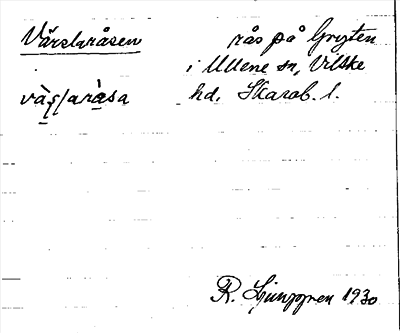 Värslaråsen rås på Gryten
i Ullene sn, Vilske
hd. Skarab. l.
R. Ljunggren 1930